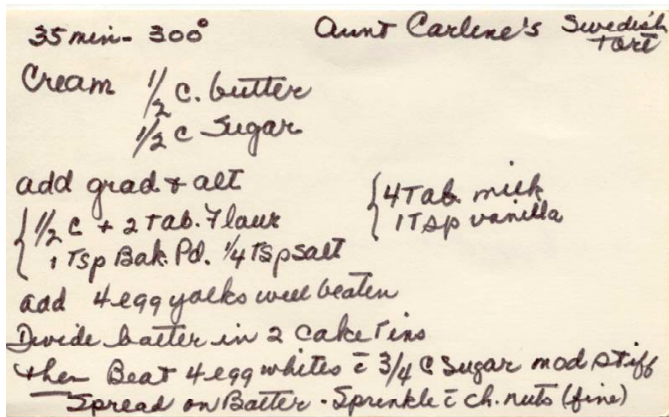 35 min - 300° Aunt Carlene's Swedish Tart
Cream 1/2 c. butter
1/2 c Sugar
add grad & alt
{ 1/2 c + 2 Tab. Flour { 4 Tab. milk
1 Tsp Bak. Pd. 1/4 Tsp salt 1 Tsp vanilla
add 4 egg yolks well beaten
Divide batter in 2 cake Tins
then Beat 4 egg whites c̄ 3/4 C Sugar mod stiff
Spread on Batter · Sprinkle c̄ ch. nuts (fine)